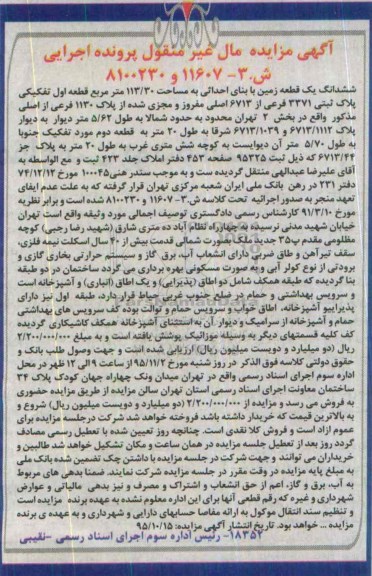 آگهی مزایده مال غیر منقول پرونده اجرایی
ش.۳- ۱۱۶۰۷ و ۸۱۰۰۲۳۰
ششدانگ یک قطعه زمین با بنای احداثی به مساحت ۱۱۳/۳۰ متر مربع قطعه اول تفکیکی
پلاک ثبتی ۳۳۷۱ فرعی از ۶۷۱۳ اصلی مفروز و مجزی شده از پلاک ۱۱۳۰ فرعی از اصلی
مذکور واقع در بخش ۲ تهران محدود به حدود شمالا به طول ۵/۶۲ متر دیوار به دیوار
پلاک ۶۷۱۳/۱۱۱۲ و ۶۷۱۳/۱۰۳۹ شرقا به طول ۲۰ متر به قطعه دوم مورد تفکیک جنوبا
به طول ۵/۷۰ متر آن دیوایست به کوچه شش متری غرب به طول ۲۰ متر به پلاک جز
۶۷۱۳/۴۴ که ذیل ثبت ۹۵۳۲۵ صفحه ۴۵۳ دفتر املاک جلد ۴۲۳ ثبت و مع الواسطه به
آقای علیرضا عبدالهی منتقل گردیده ست و به موجب سندر هنی ۱۰۰۰۴۵ مورخ ۷۴/۱۲/۱۲
دفتر ۲۳۱ در رهن بانک ملی ایران شعبه مرکزی تهران قرار گرفته که به علت عدم ایفای
تعهد منجر به صدور اجرائیه تحت کلاسه ش.۳- ۱۱۶۰۷ و ۸۱۰۰۲۳۰ شده است و برابر نظریه
مورخ ۹۱/۳/۱۰ کارشناس رسمی دادگستری توصیف اجمالی مورد وثیقه واقع است تهران
خیابان شهید مدنی نرسیده به چهارراه نظام آباد ده متری شارق (شهید رضا رجبی) کوچه
مظلومی مقدم پ۳۵ جدید ملک بصورت شمالی قدمت بیش از ۴۰ سال اسکلت نیمه فلزی،
سقف تیرآهن و طاق ضربی دارای انشعاب آب، برق گاز و سیستم حرارتی بخاری گازی و
برودتی از نوع کولر آبی و به صورت مسکونی بهره برداری می گردد ساختمان در دو طبقه
بنا گردیده که طبقه همکف شامل دو اطاق (پذیرایی) و یک اطاق (انباری) و آشپزخانه است
و سرویس بهداشتی و حمام در ضلع جنوب غربی حیاط قرار دارد، طبقه اول نیز دارای
پذیراییو آشپزخانه، اطاق خواب و سرویس حمام و توالت بوده کف سرویس های بهداشتی
حمام و آشپزخانه از سرامیک و دیوار آن به استثنای آشپزخانه همکف کاشیکاری گردیده
کف کلیه قسمتهای دیگر به وسیله موزائیک پوشش یافته است و به مبلغ ۲/۲۰۰/۰۰۰/۰۰۰
ریال (دو میلیارد و دویست میلیون ریال) ارزیابی شده است و جهت وصول طلب بانک و
حقوق دولتی کلاسه فوق الذکر در روز شنبه مورخ ۹۵/۱۱/۲ از ساعت ۹ الی ۱۲ ظهر در محل
اداره سوم اجرای اسناد رسمی واقع در تهران میدان ونک چهاراه جهان کودک پلاک ۳۴
ساختمان معاونت اجرای اسناد رسمی استان تهران سالن مزایده از طریق مزایده حضوری
به فروش می رسد و مزایده از ۲/۲۰۰/۰۰۰/۰۰۰ (دو میلیارد و دویست میلیون ریال) شروع و
به بالاترین قیمت که خریدار داشته باشد فروخته خواهد شد شرکت در جلسه مزایده برای
عموم ازاد است و فروش کلا نقدی است. چنانچه روز تعیین شده با تعطیل رسمی مصادف
گردد روز بعد از تعطیل جلسه مزایده در همان ساعت و مکان تشکیل خواهد شد طالبین و
خریداران می توانند و جهت شرکت در جلسه مزایده با داشتن چک تضمین شده بانک ملی
به مبلغ پایه مزایده در وقت مقرر در جلسه مزایده شرکت نمایند. ضمنا بدهی های مربوط
به آب، برق و گاز، اعم از حق انشعاب و اشتراک و مصرف و نیز بدهی مالیاتی و عوارض
شهرداری و غیره که رقم قطعی آنها برای این اداره معلوم نشده به عهده برنده مزایده است
و تنظیم سند انتقال موکول به ارائه مفاصا حسابهای دارایی و شهرداری و به عهده ی برنده
مزایده ... خواهد بود. تاریخ انتشار آگهی مزایده: ۹۵/۱۰/۱۵
۱۸۳۵۲- رئیس اداره سوم اجرای اسناد رسمی -نقیبی